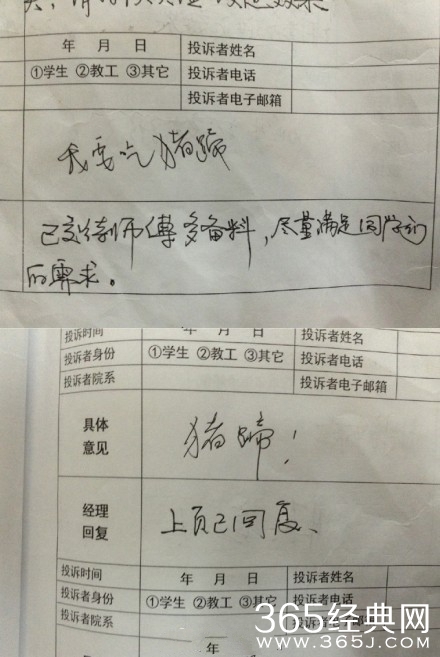 年 月 日 投诉者姓名
①学生 ②教工 ③其它 投诉者电话
投诉者电子邮箱
我要吃猪蹄
已交待师傅多备料，尽量满足同学们
的需求。
投诉时间 年 月 日 投诉者姓名
投诉者身份 ①学生 ②教工 ③其它 投诉者电话
投诉者院系 投诉者电子邮箱
具体
意见
猪蹄！
经理
回复
上页已回复、
投诉时间 年 月 日 投诉者姓名
投诉者身份 ①学生 ②教工 ③其它 投诉者电话
投诉者院系 投诉者电子邮
年
365经典网
WWW.365J.COM